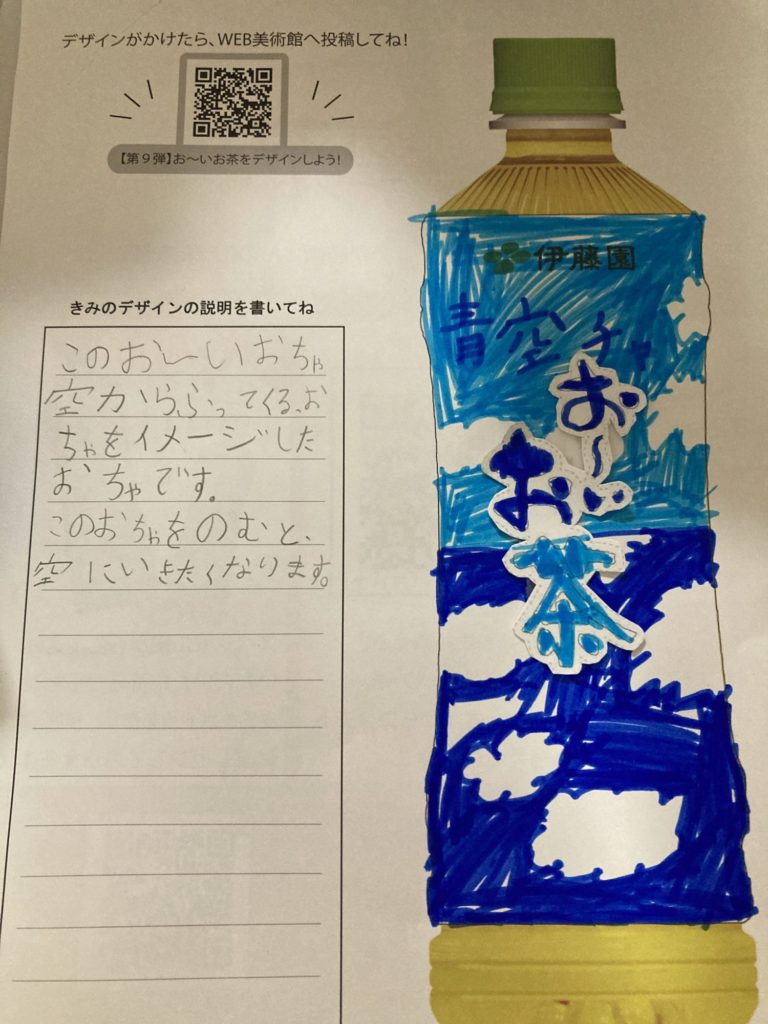 デザインがかけたら、WEB美術館へ投稿してね!
【第9弾】お〜いお茶をデザインしよう!
きみのデザインの説明を書いてね
このお〜いおちゃ
空からふってくる、お
ちゃをイメージした
おちゃです。
このおちゃをのむと、
空にいきたくなります。
伊藤園
青空チャ
お〜い
お
茶